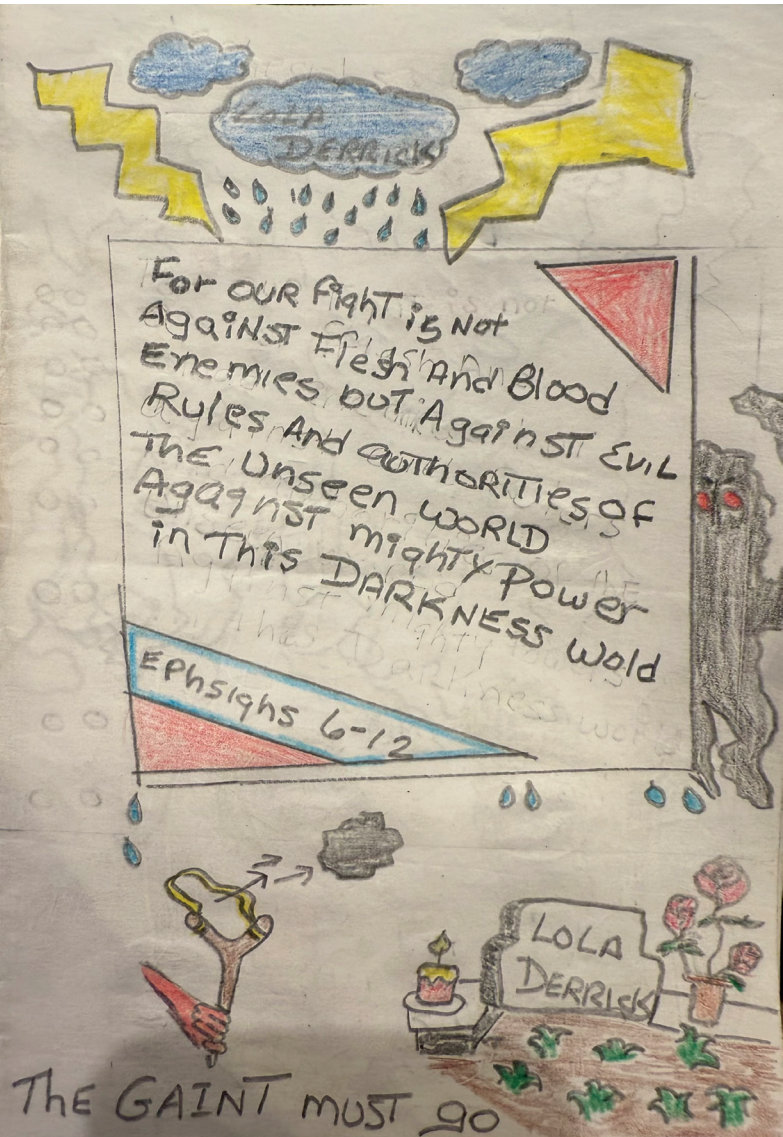 LOLA
DERRICK
For OUR fight is Not
Against Flesh And Blood
Enemies but Against EVIL
Rules And authorities of
The Unseen WORLD
Against mighty Power
in This DARKNESS Wold
EPhsighs 6-12
LOLA
DERRICK
The GAINT must go